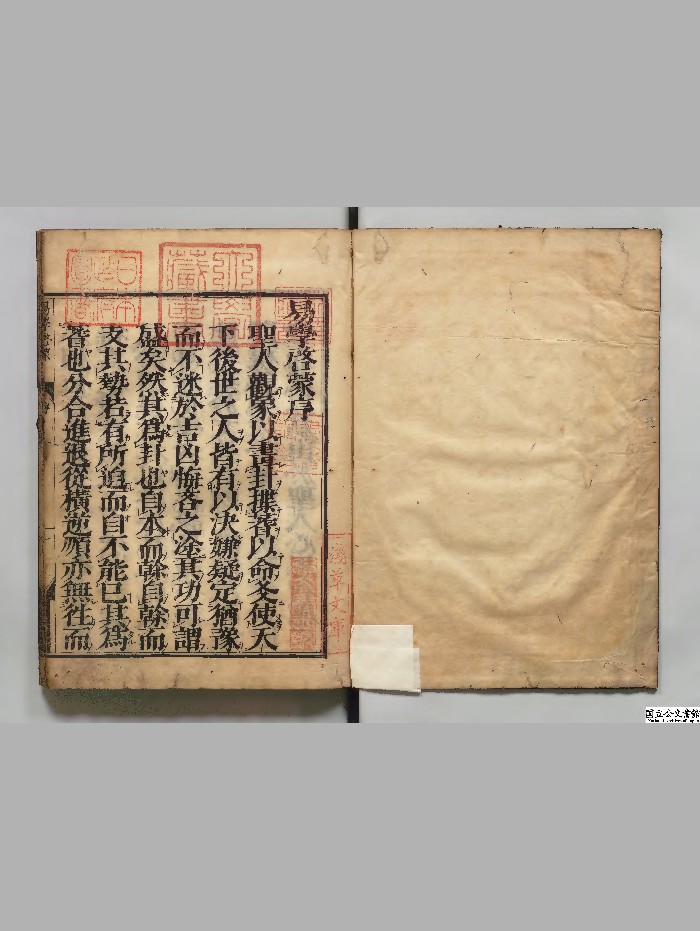 易學啓蒙序
聖人觀象以畫卦揲蓍以命爻使天
下後世之人皆有以决嫌疑定猶豫
而不迷於吉凶悔吝之塗其功可謂
盛矣然其爲卦也自本而榦自榦而
支其勢若有所迫而自不能已其爲
蓍也分合進退從橫逆順亦無往而
淺草文庫
日本
國立公文書館